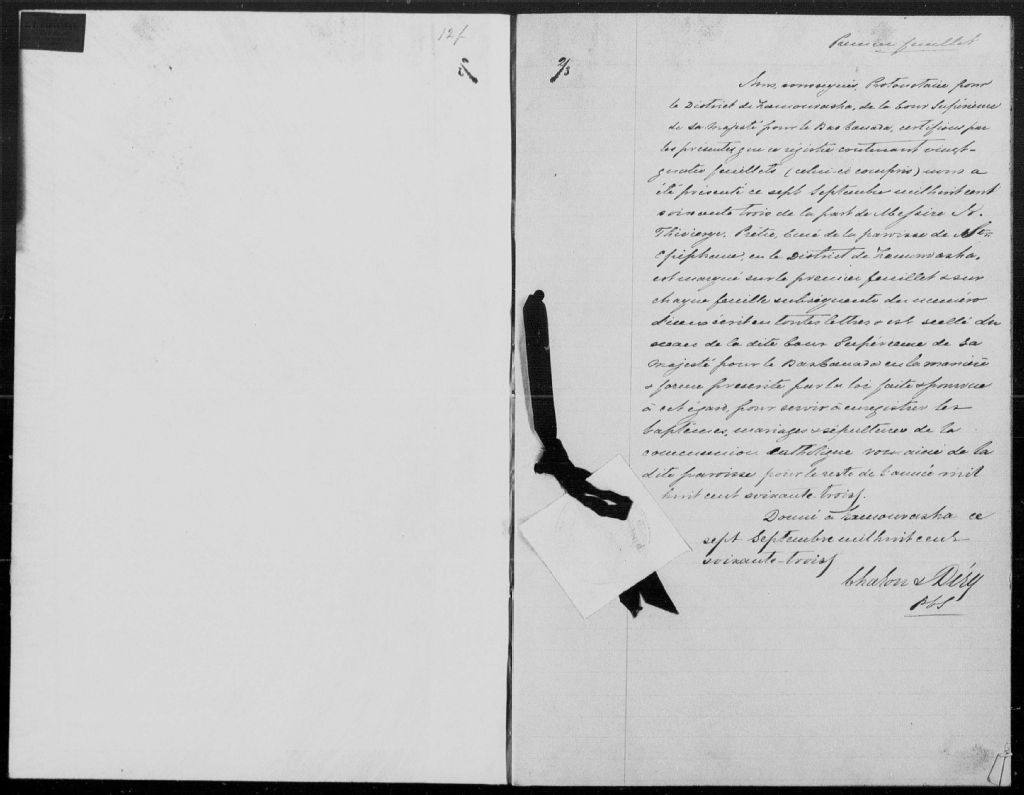 127
Premier feuillet
Nous, soussignés, Protonotaire pour
le District de Kamouraska, de la Cour Supérieure
de Sa Majesté pour le Bas Canada, certifions par
les présentes que ce régistre contenant vingt-
quatre feuillets (celui-ci compris) nous a
été présenté ce sept Septembre mil huit cent
soixante trois de la part de Messire N.
Thivierge, Prêtre, Curé de la paroisse de St
Epiphane, en le District de Kamouraska,
est marqué sur le premier feuillet & sur
chaque feuille subséquente du numéro
d'iceux écrit en toutes lettres & est scellé du
sceau de la dite Cour Supérieure de Sa
Majesté pour le Bas Canada en la manière
& forme prescrite par la loi faite & pourvue
à cet égard, pour servir à enregistrer les
baptêmes, mariages & sépultures de la
communion Catholique romaine de la
dite paroisse pour le reste de l'année mil
huit cent soixante-trois.
Donné à Kamouraska ce
sept Septembre mil huit cent
soixante-trois
Chalou & Déry
PCS